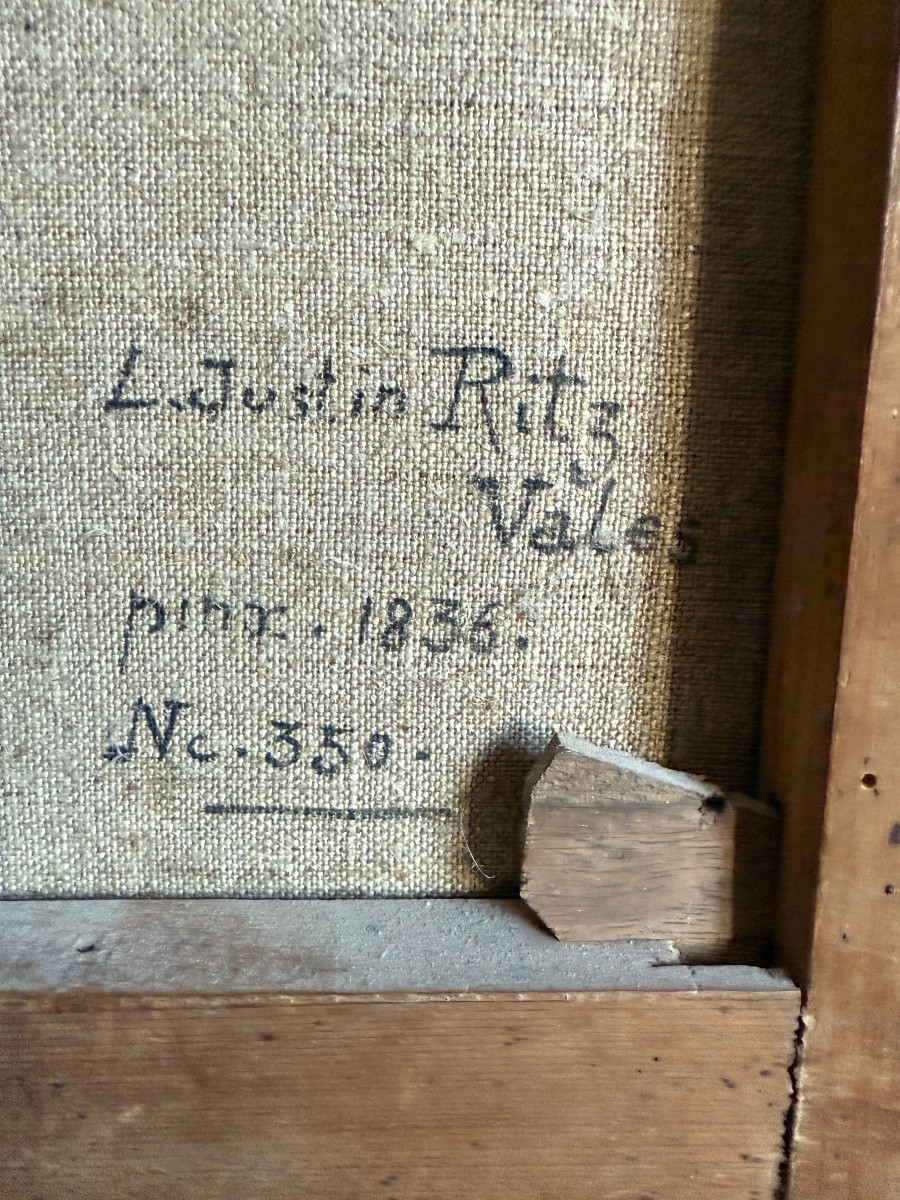 L. Justin Ritz
Vales
pinx. 1836.
No. 350.